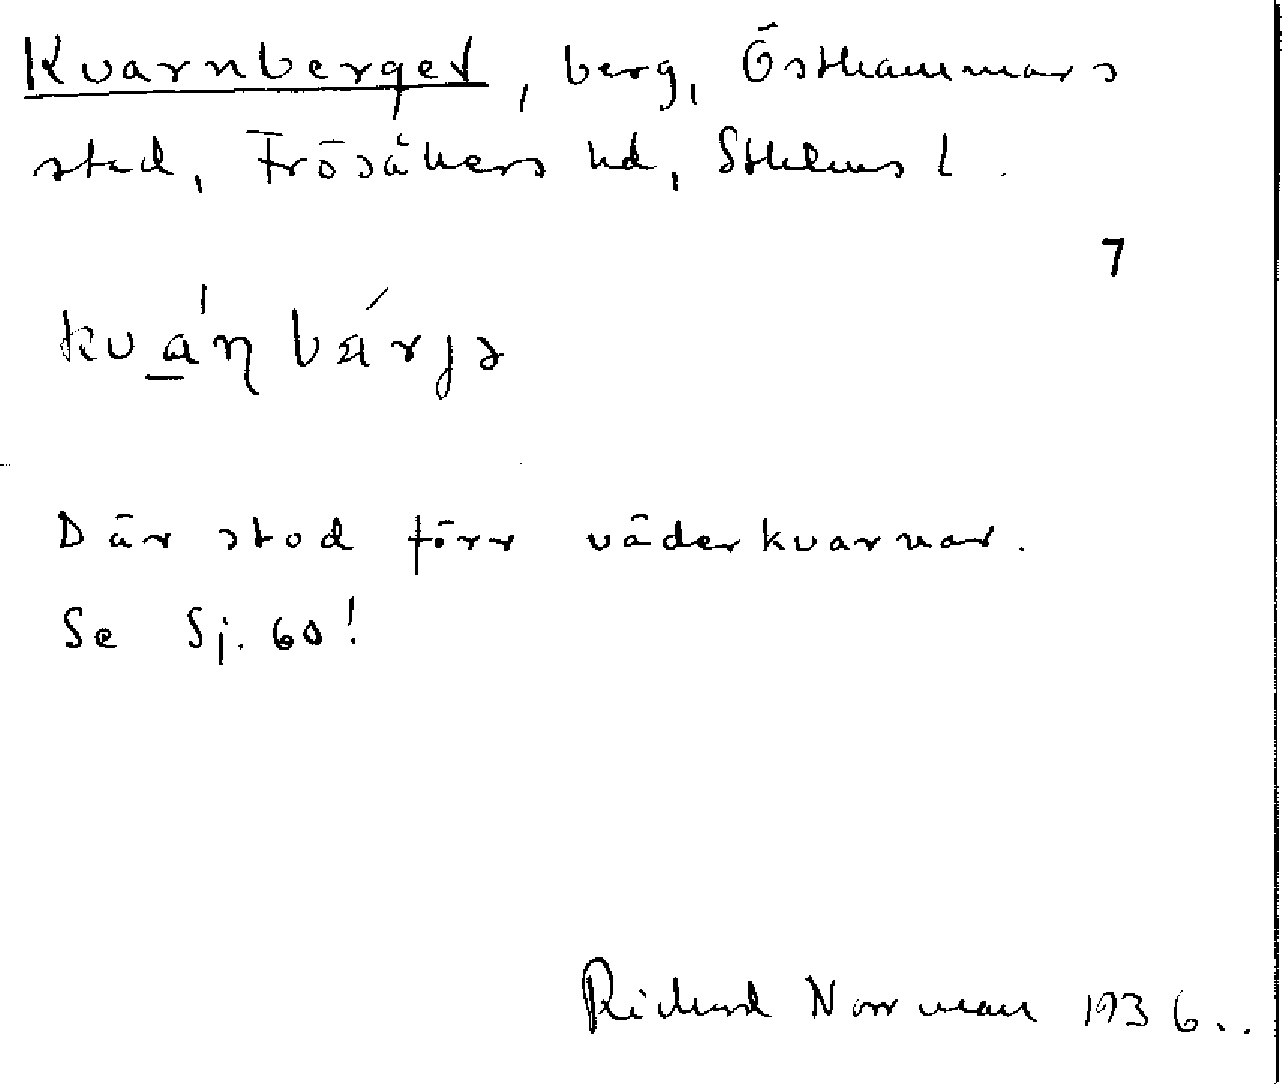 Kvarnberget, berg, Östhammars
stad, Frösåkers hd, Sthlms l.
7
kva̱´ɳbä́rjə
Där stod förr väderkvarnar.
Se Sj. 60!
Richard Norrman 1936.